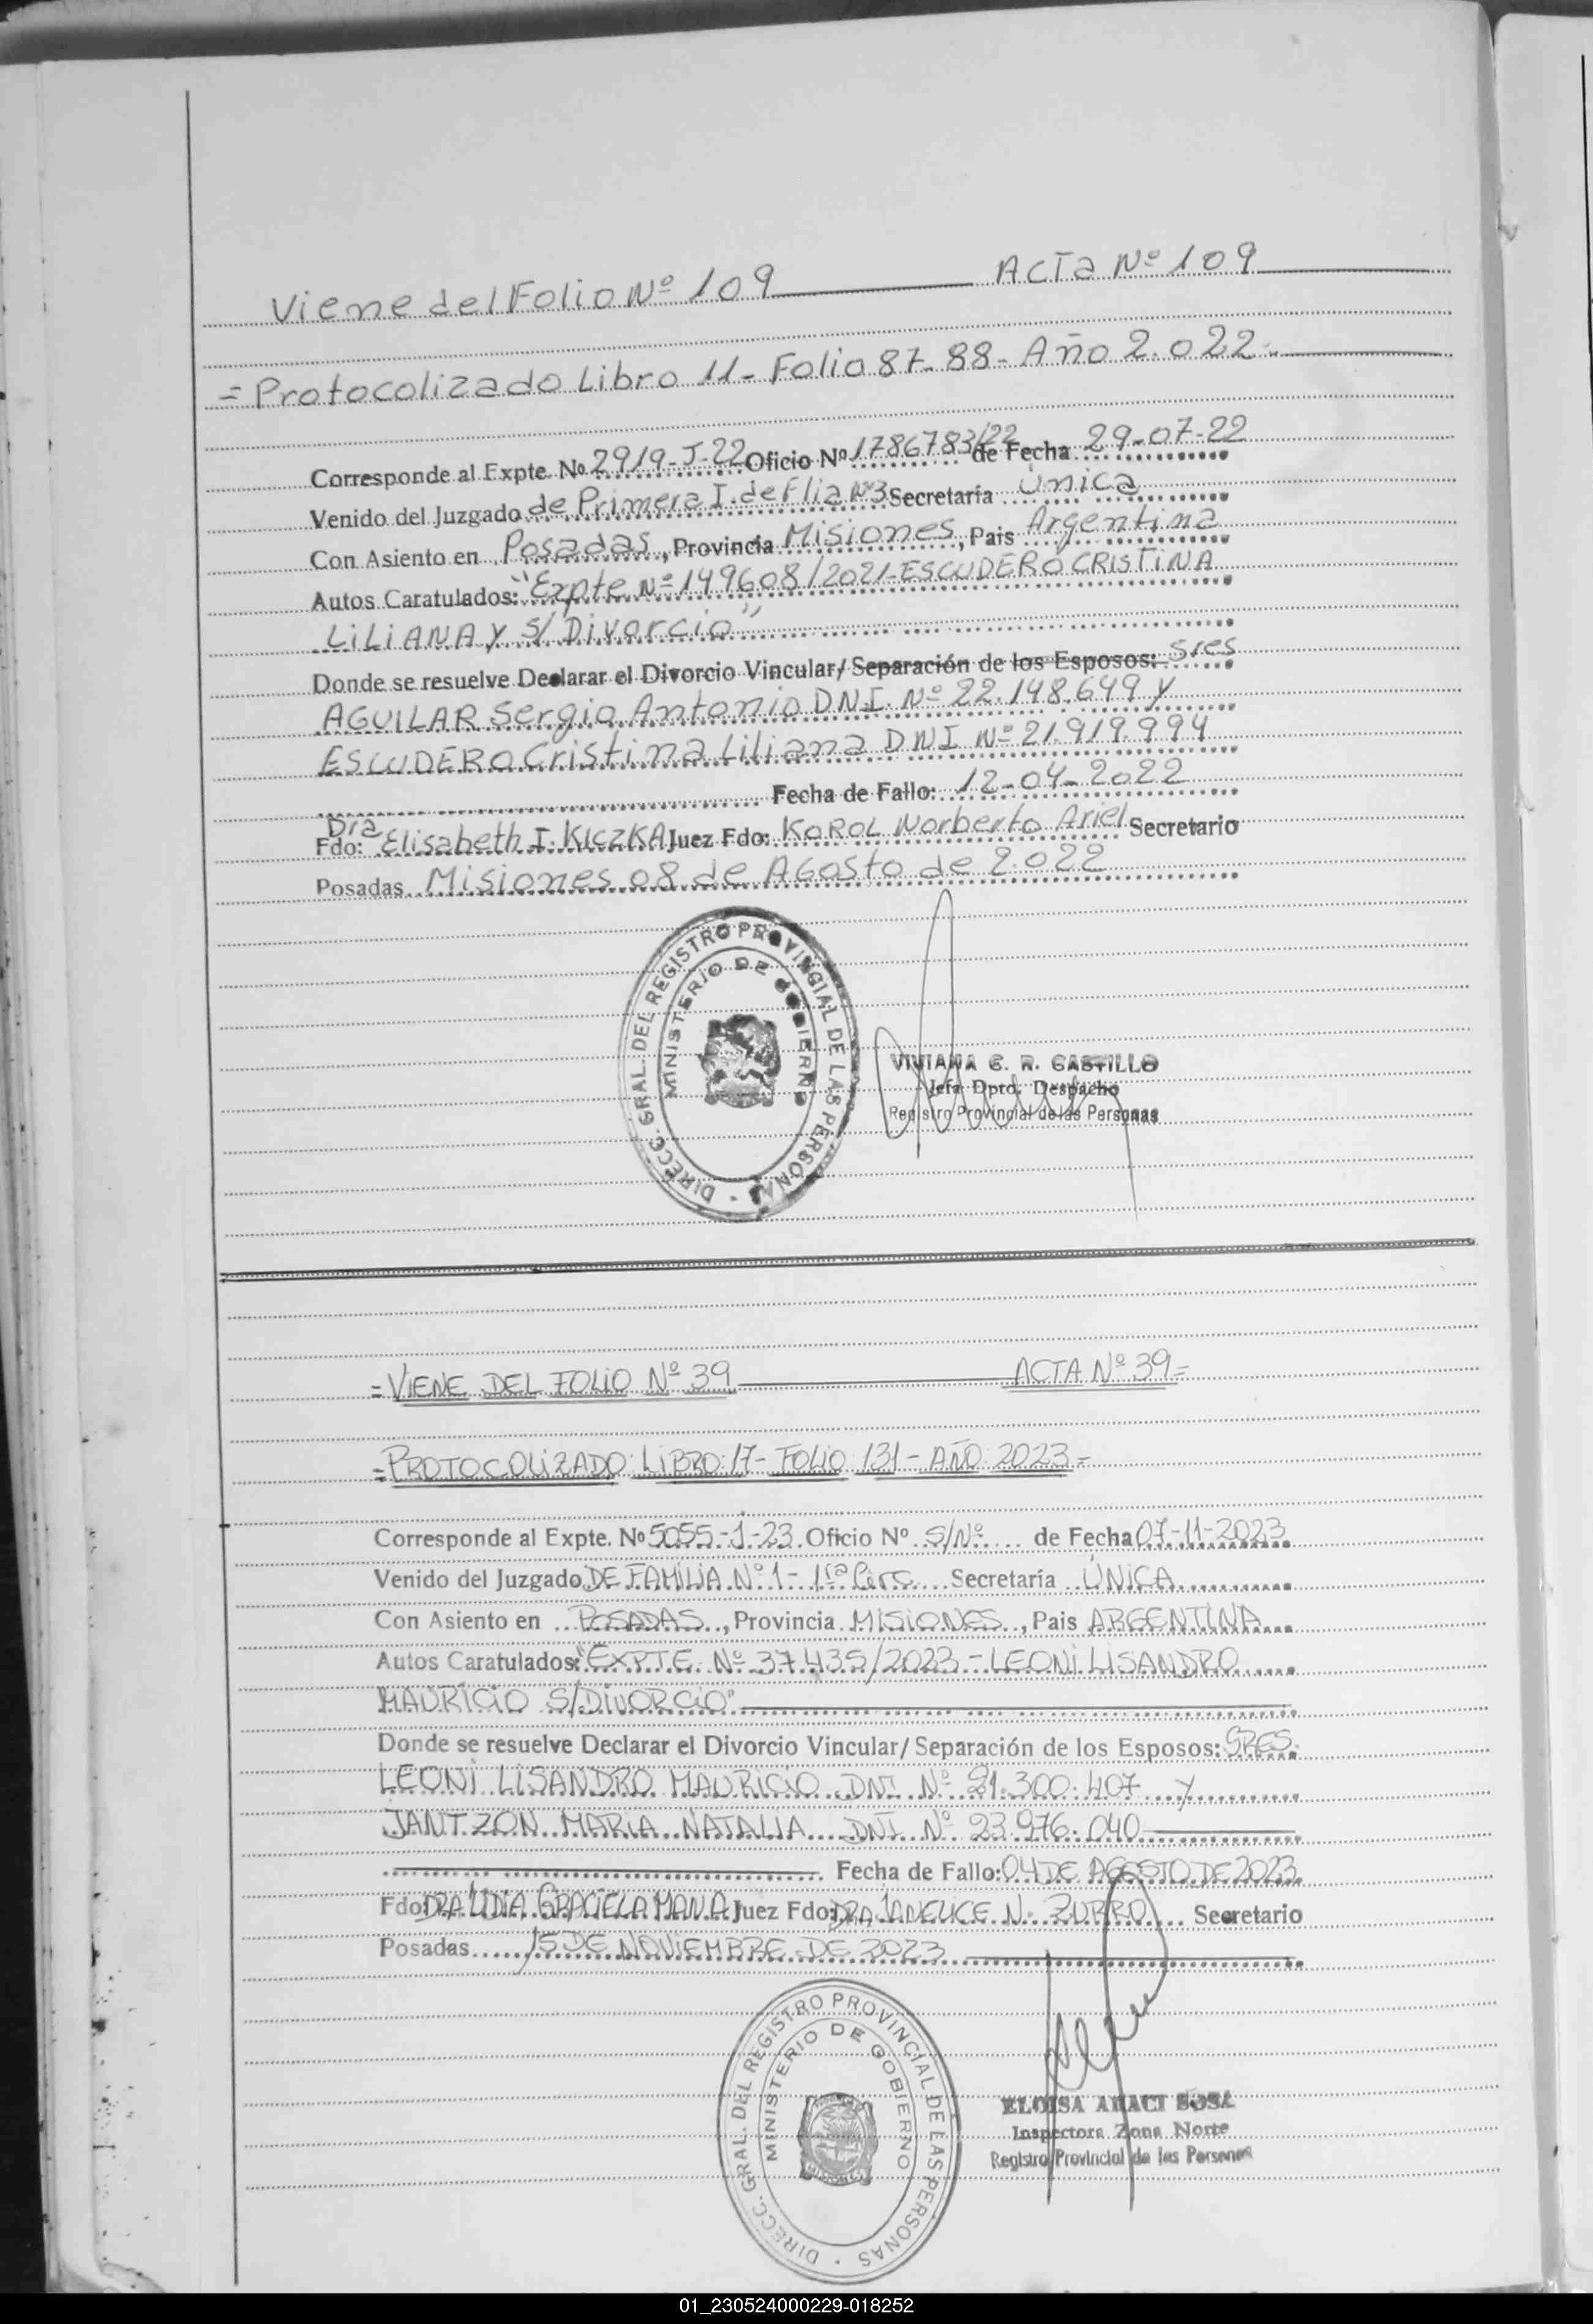 Viene del Folio Nº 109 Acta Nº 109
= Protocolizado Libro 11 - Folio 87 - 88 - Año 2.022.-
Corresponde al Expte. Nº 2919-J-22 Oficio Nº 1786783/22 de Fecha 29-07-22
Venido del Juzgado de Primera I. de Flia Nº3 Secretaría Única
Con Asiento en Posadas, Provincia Misiones, Pais Argentina
Autos Caratulados: "Expte Nº 149608/2021-ESCUDERO CRISTINA
LILIANA y S/ Divorcio"
Donde se resuelve Declarar el Divorcio Vincular/ Separación de los Esposos: Sres
AGUILAR Sergio Antonio D.N.I. Nº 22.148.649 y
ESCUDERO Cristina Liliana DNI Nº 21.919.994
Fecha de Fallo: 12-04-2022
Fdo: Dra Elisabeth I. KICZKA Juez Fdo: KOROL Norberto Ariel Secretario
Posadas Misiones 08 de Agosto de 2.022
DIRECC. GRAL. DEL REGISTRO PROVINCIAL DE LAS PERSONAS
MINISTERIO DE GOBIERNO
VIVIANA G. R. CASTILLO
Jefa Dpto. Despacho
Registro Provincial de las Personas
= VIENE DEL FOLIO Nº 39 ACTA Nº 39 =
= PROTOCOLIZADO: LIBRO: 17 - FOLIO 131 - AÑO 2023 =
Corresponde al Expte. Nº 5055-J-23 Oficio Nº S/Nº de Fecha 07-11-2023
Venido del Juzgado DE FAMILIA Nº 1 - 1ra Circ. Secretaría ÚNICA
Con Asiento en POSADAS, Provincia MISIONES, Pais ARGENTINA
Autos Caratulados: "EXPTE Nº 37.435/2023 - LEONI LISANDRO
MAURICIO S/DIVORCIO"
Donde se resuelve Declarar el Divorcio Vincular/ Separación de los Esposos: SRES.
LEONI LISANDRO MAURICIO DNI Nº 21.300.407 y
JANTZON MARIA NATALIA DNI Nº 23.976.040
Fecha de Fallo: 04 DE AGOSTO DE 2023
Fdo: DRA LIDIA GRACIELA MANA Juez Fdo: DRA JANELICE N. ZURRO Secretario
Posadas 15 DE NOVIEMBRE DE 2023
DIRECC. GRAL. DEL REGISTRO PROVINCIAL DE LAS PERSONAS
MINISTERIO DE GOBIERNO
ELOISA ARACI SOSA
Inspectora Zona Norte
Registro Provincial de las Personas
01_230524000229-018252